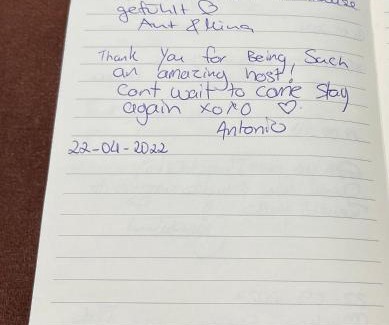 gefühlt
& Mina
Thank You for Being Such
an amazing host!
Cant wait to come stay
again xoxo ♡.
Antonio
22-04-2022